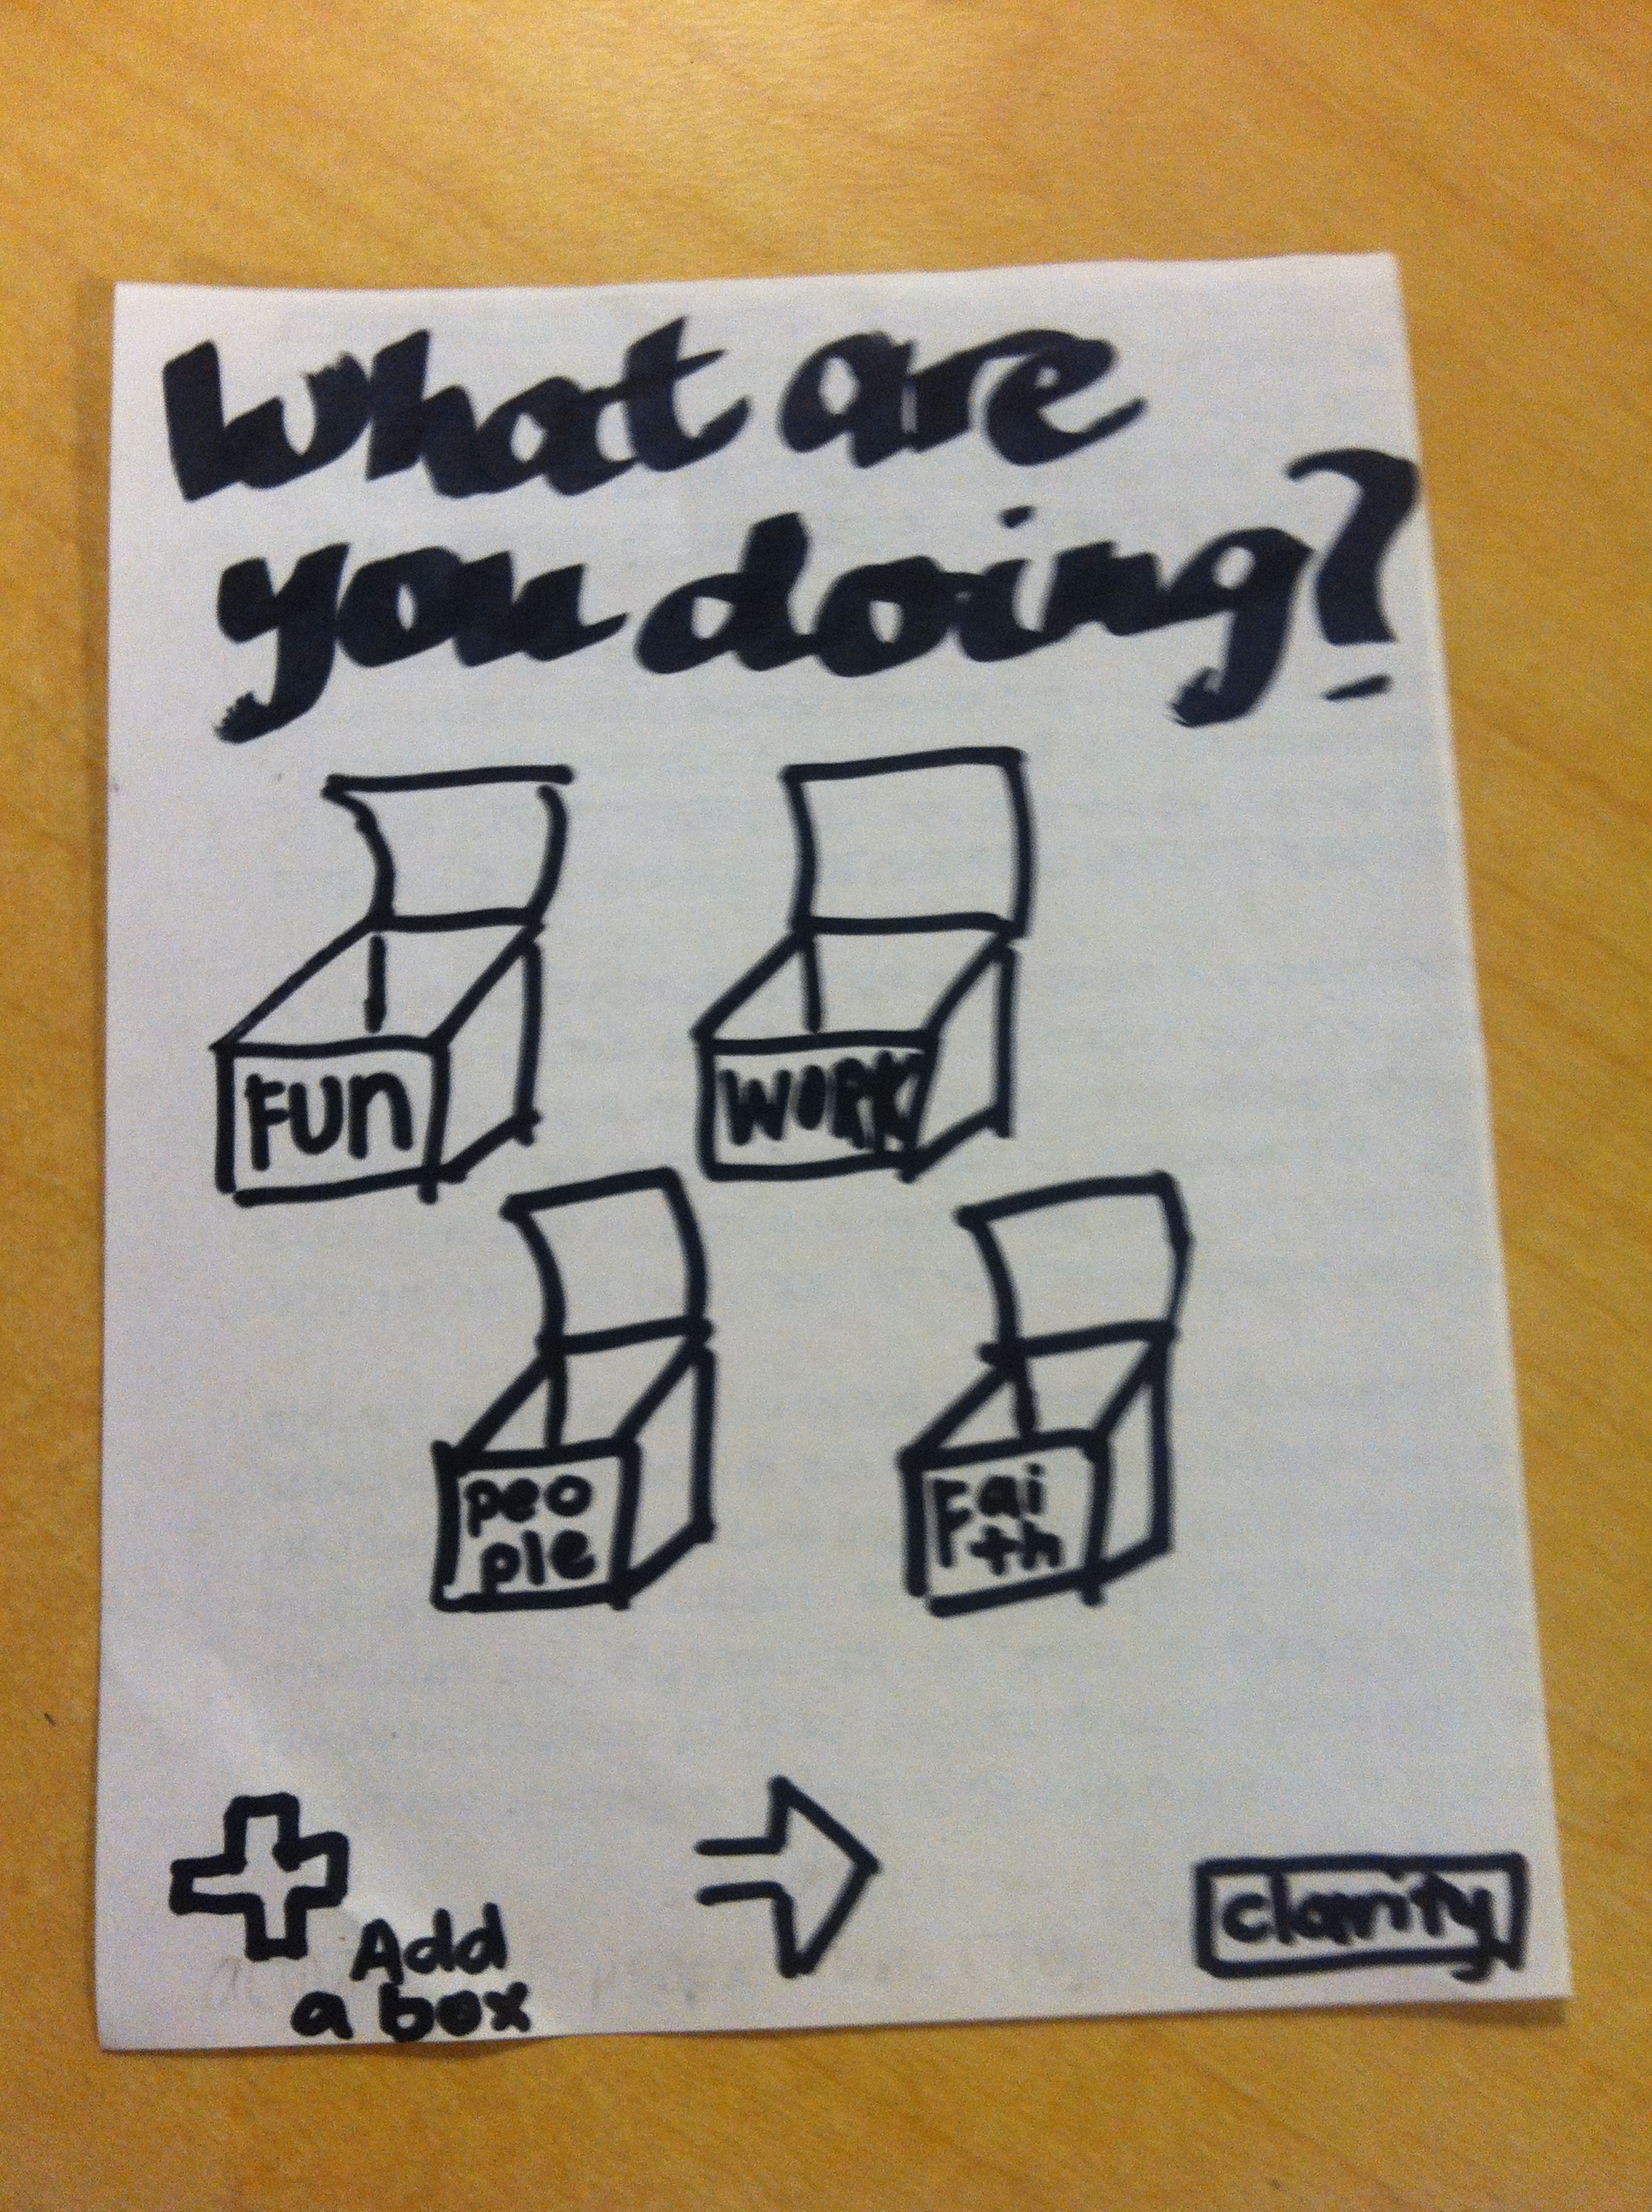 What are
you doing?
FUn
WORK
peo
ple
Fai
th
Add
a box
clarity